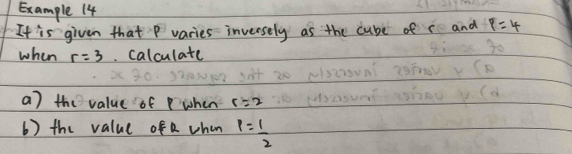 Example 14
It is given that P varies inversely as the cube of r and P=4
when r=3. Calculate
a) the value of P when r=2
b) the value of R when P=1/2